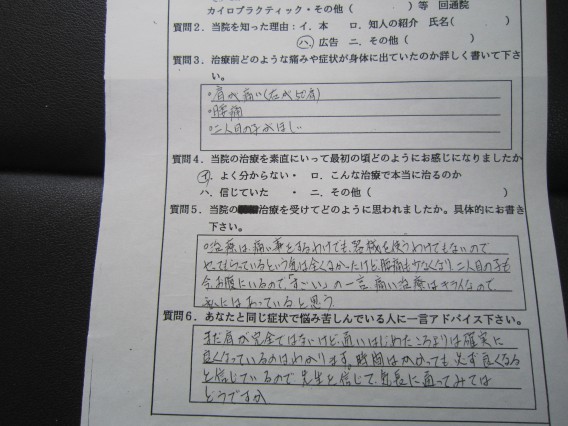 カイロプラクティック・その他（　　　　　）等　回通院
質問２．当院を知った理由：イ．本　ロ．知人の紹介　氏名（　　　　　）
ハ．広告　ニ．その他（　　　　　）
質問３．治療前どのような痛みや症状が身体に出ていたのか詳しく書いて下さ
い。
・肩が痛い（右が五十肩）
・腰痛
・二人目の子がほしい
質問４．当院の治療を素直にいって最初の頃どのようにお感じになりましたか
イ．よく分からない・　ロ．こんな治療で本当に治るのか
ハ．信じていた　・　ニ．その他（　　　　　）
質問５．当院の治療を受けてどのように思われましたか。具体的にお書き
下さい。
○治療は、痛い事をするわけでも、器械を使うわけでもないので
やってもらっているという気は全くなかったけど、腰痛も少なくなり、二人目の子も
今、お腹にいるので、「すごい」の一言 痛い治療はキライなので
私にはあっていると思う
質問６．あなたと同じ症状で悩み苦しんでいる人に一言アドバイス下さい。
まだ肩が完全ではないけど、通いはじめたころよりは確実に
良くなっているのはわかります。時間はかかっても必ず良くなる
と信じているので 先生を信じて、気長に通ってみては
どうですか